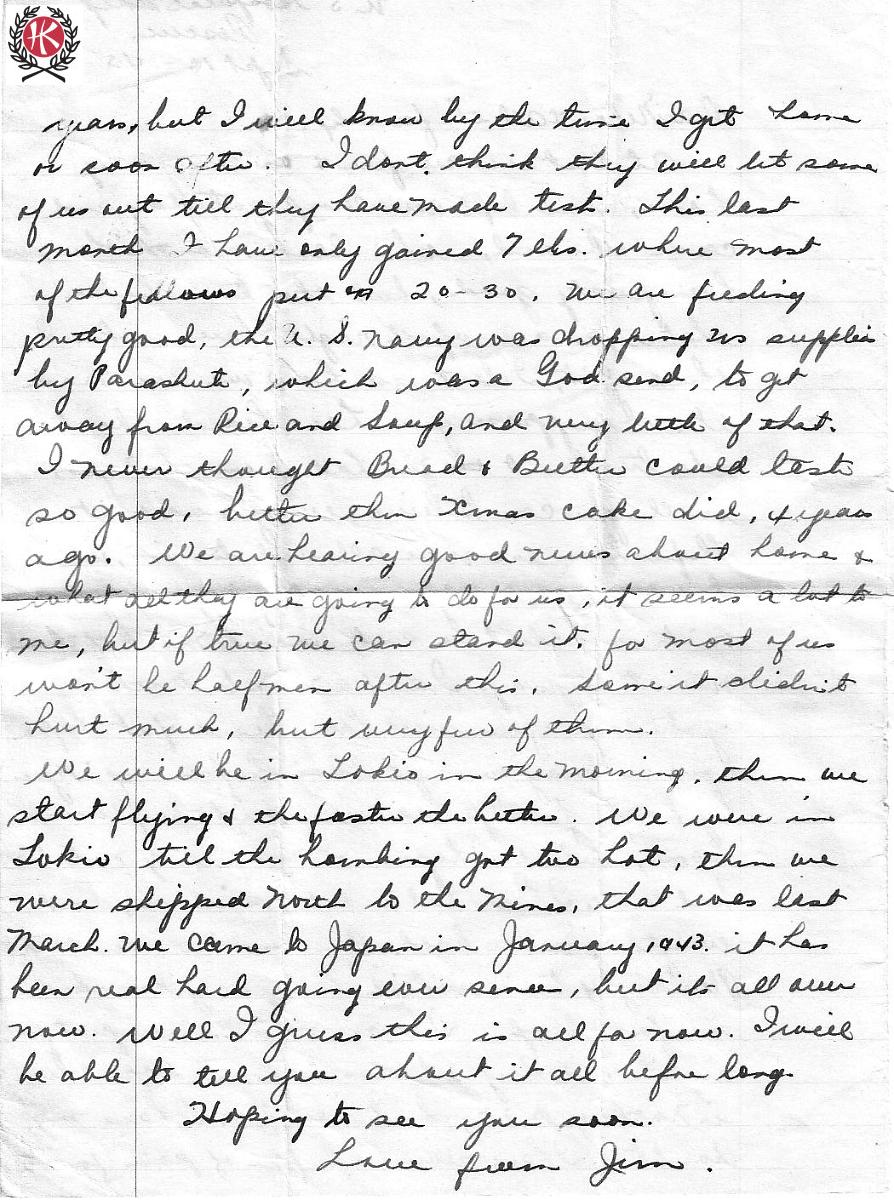 HK
years, but I will know by the time I get home
or soon after. I dont think they will let some
of us out till they have made test. This last
month I have only gained 7 lbs. where most
of the fellows put on 20-30. We are feeding
pretty good, the U.S. Navy was dropping us supplies
by Parashute, which was a God send, to get
away from Rice and Soup, and very little of that.
I never thought Bread & Butter could taste
so good, better then Xmas cake did, 4 years
ago. We are hearing good news about home &
what all they are going to do for us, it seems a lot to
me, but if true we can stand it. for most of us
won't be half men after this. some it didn't
hurt much, but very few of them.
We will be in Tokio in the morning, then we
start flying & the faster the better. We were in
Tokio till the bombing got too hot, then we
were shipped North to the mines, that was last
March. We came to Japan in January 1943. it has
been real hard going ever since, but its all over
now. Well I guess this is all for now. I will
be able to tell you about it all before long.
Hoping to see you soon.
Love from Jim.